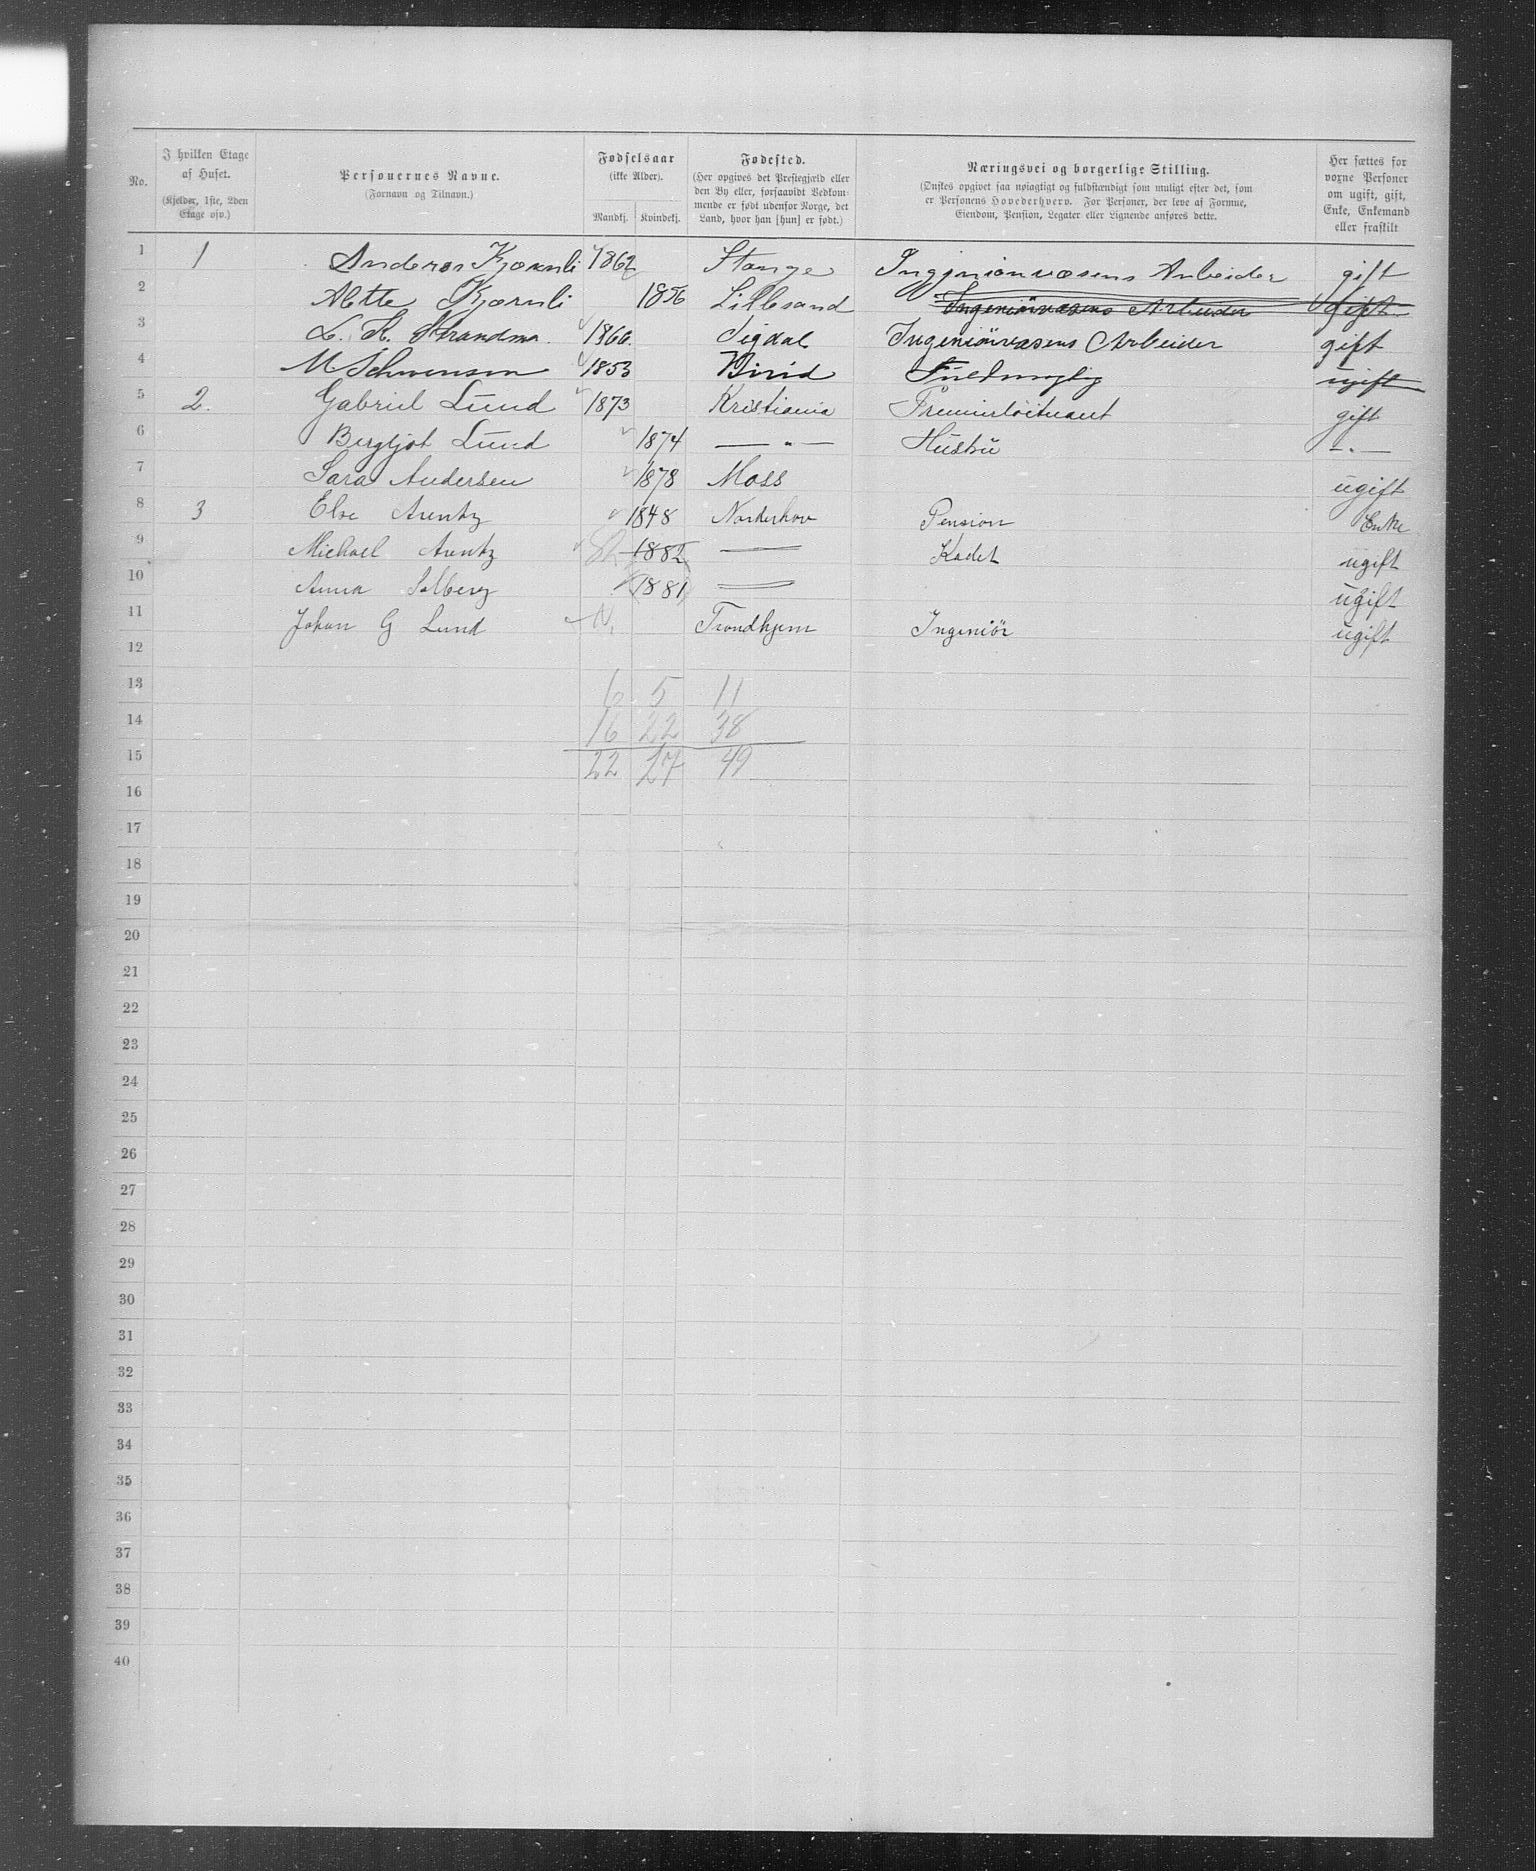 No.
I hvilken Etage af Huset.
(Kjelder, 1ste, 2den Etage osv.)
Personernes Navne.
(Fornavn og Tilnavn.)
Fødselsaar
(ikke Alder).
Mandkj. Kvindekj.
Fødested.
(Her opgives det Prestegjæld eller
den By eller, forsaavidt Vedkom-
mende er født udenfor Norge, det
Land, hvor han [hun] er født.)
Næringsvei og borgerlige Stilling.
(Ønskes opgivet saa nøiagtigt og fuldstændigt som muligt efter det, som
er Personens Hovederhverv. For Personer, der leve af Formue,
Eiendom, Pension, Legater eller Lignende anføres dette.
Her sættes for
voxne Personer
om ugift, gift,
Enke, Enkemand
eller fraskilt
1 1 Anders Kjærnli 1862 Stange Ingeniørvæsens Arbeider gift
2 Mette Kjærnli 1856 Lillesand Ingeniørvæsens Arbeider gift
3 L. K. 1866 Sigdal Ingeniørvæsens Arbeider gift
4 M 1853 Birid ugift
5 2. Gabriel Lund 1873 Kristiania Premierløitnant gift
6 Bergljot Lund 1874 — " — Hustru — " —
7 Sara Andersen 1878 Moss ugift
8 3 Else Arentz 1848 Norderhov Pension Enke
9 Michael Arentz 82 1882 — Kadet ugift
10 Anna Solberg 1881 — ugift
11 Johan G Lund N. Trondhjem Ingeniør ugift
12
13 6 5 11
14 16 22 38
15 22 27 49
16
17
18
19
20
21
22
23
24
25
26
27
28
29
30
31
32
33
34
35
36
37
38
39
40